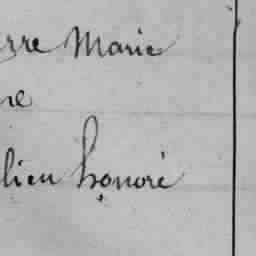 erre Marie
ne
lien honoré